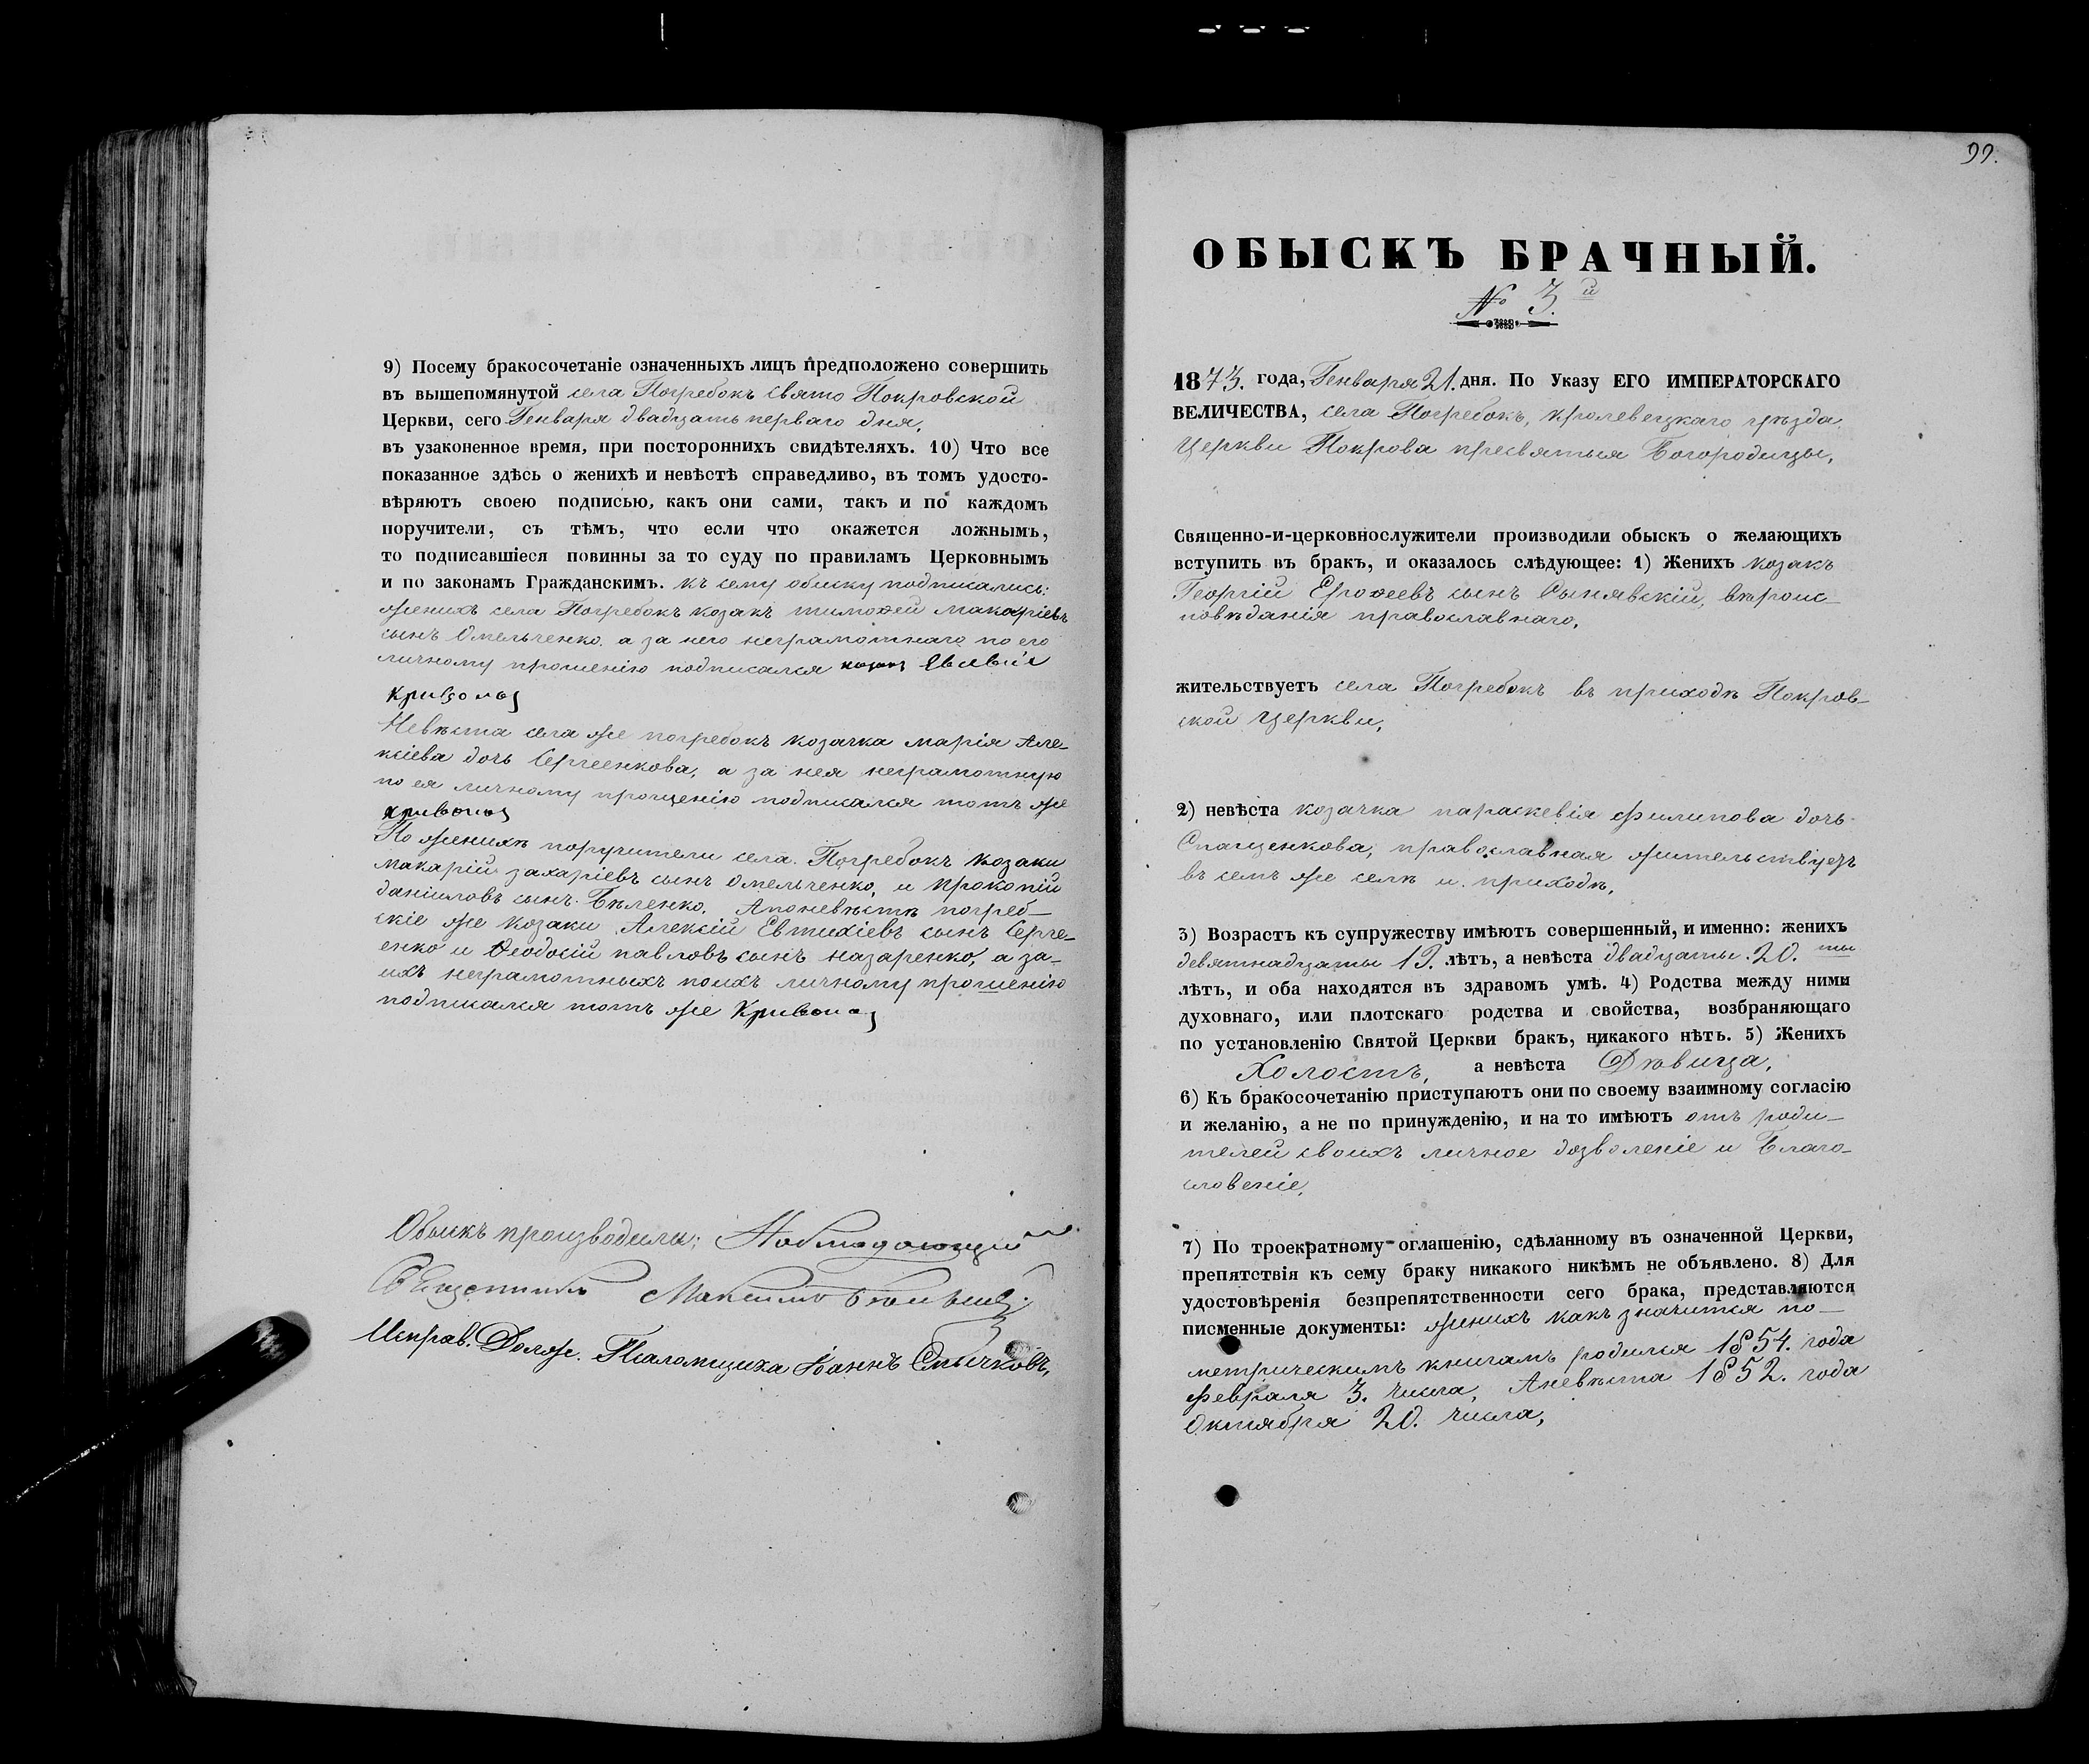 9) Посему бракосочетаніе означенныхъ лицъ предположено совершить
въ вышепомянутой села Погребокъ свято Покровской
Церкви, сего Генваря двадцать перваго дня,
въ узаконенное время, при постороннихъ свидѣтеляхъ. 10) Что все
показанное здѣсь о женихѣ и невѣстѣ справедливо, въ томъ удосто-
вѣряютъ своею подписью, какъ они сами, такъ и по каждомъ
поручители, съ тѣмъ, что если что окажется ложнымъ,
то подписавшіеся повинны за то суду по правиламъ Церковнымъ
и по законамъ Гражданскимъ. къ сему обыску подписались:
женихъ села Погребокъ козакъ тимоѳей макаріевъ
сынъ Омельченко, а за него неграмотнаго по его
личному прошенію подписался козакъ
Невѣста села же погребокъ козачка марія Але-
ксіева дочь Сергеенкова, а за нея неграмотную
по ея личному прощенію подписался тотъ же
По женихѣ поручители села Погребокъ козаки
макарій захаріевъ сынъ Омельченко, и прокопій
даниловъ сынъ Бѣленко, Апоневѣстѣ погреб-
скіе же козаки Алексій Евтихіевъ сынъ Серге-
енко и Ѳеодосій павловъ сынъ назаренко, а за-
ихъ неграмотныхъ поихъ личному прошенію
подписался тотъ же
Обыскъ производили: Наблюдающій
Священникъ Максимъ
Исправ. Долж. Псаломщика Іоаннъ Смычковъ,
99.
ОБЫСКЪ БРАЧНЫЙ.
№ 3.й
1873. года, Генваря 21. дня. По Указу ЕГО ИМПЕРАТОРСКАГО
ВЕЛИЧЕСТВА, села Погребокъ, кролевецкаго уѣзда
Церкви Покрова пресвятыя Богородицы,
Священно-и-церковнослужители производили обыскъ о желающихъ
вступить въ бракъ, и оказалось слѣдующее: 1) Женихъ козакъ
Георгій Ероѳеевъ сынъ Сынявскій, вѣроис-
повѣданія православнаго,
жительствуетъ села Погребокъ въ приходѣ Покров-
ской Церкви,
2) невѣста козачка параскевія Филипова дочь
Спащенкова, православная жительствуетъ
въ семъ же селѣ и приходѣ,
3) Возрастъ къ супружеству имѣютъ совершенный, и именно: женихъ
девятнадцаты 19. лѣтъ, а невѣста двадцаты. 20. ты
лѣтъ, и оба находятся въ здравомъ умѣ. 4) Родства между ними
духовнаго, или плотскаго родства и свойства, возбраняющаго
по установленію Святой Церкви бракъ, никакого нѣтъ. 5) Женихъ
Холостъ, а невѣста Дѣвица,
6) Къ бракосочетанію приступаютъ они по своему взаимному согласію
и желанію, а не по принужденію, и на то имѣютъ отъ роди-
телей своихъ личное дозволеніе и Благо-
словеніе,
7) По троекратному оглашенію, сдѣланному въ означенной Церкви,
препятствія къ сему браку никакого никѣмъ не объявлено. 8) Для
удостовѣренія безпрепятственности сего брака, представляются
писменные документы: женихъ какъ значится по-
метрическимъ книгамъ родился 1854. года
февраля 3. числа, Аневѣста 1852. года
Октября 20. числа,